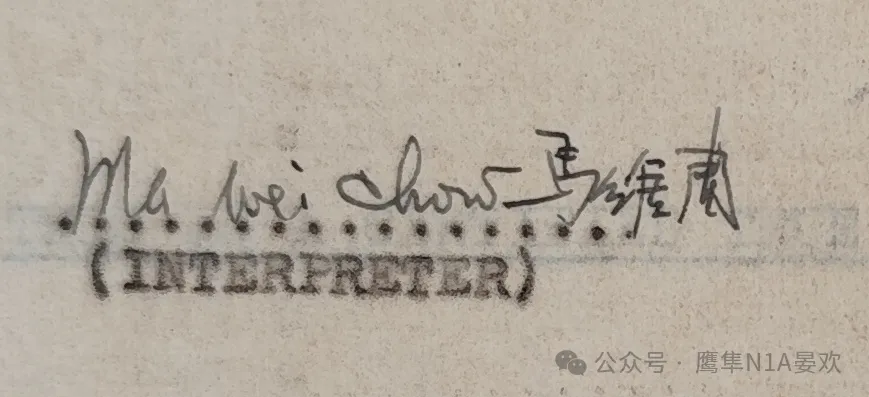 Ma Wei Chow 馬維周
(INTERPRETER)
公众号 · 鹰隼N1A晏欢